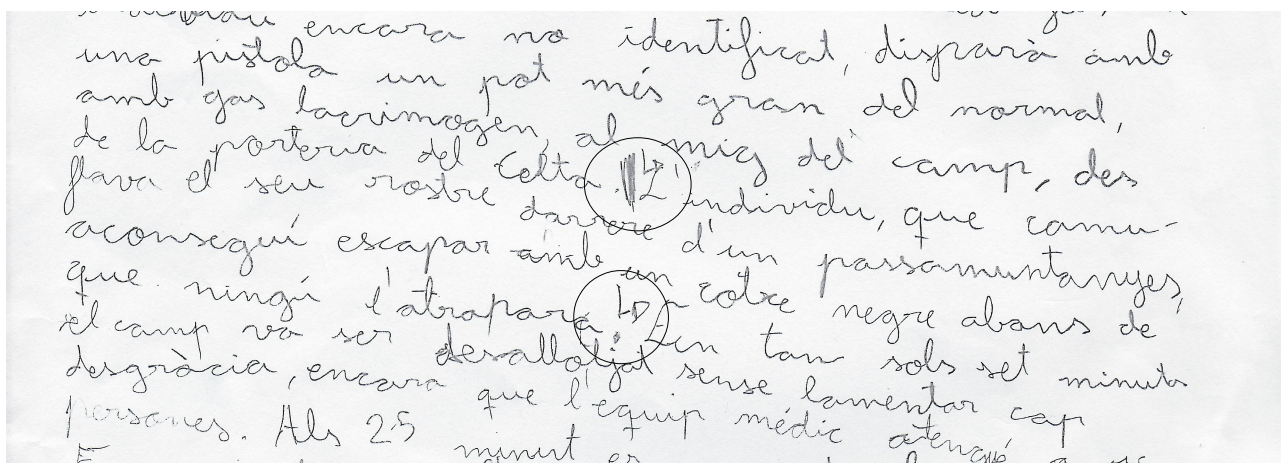 encara no identificat, disparà amb
una pistola un pot més gran del normal,
amb gas lacrimogen, al mig del camp, des
de la porteria del Celta. L'individu, que camu-
flava el seu rostre darrere d'un passamuntanyes,
aconseguí escapar amb un cotxe negre abans de
que ningú l'atrapara. En tan sols set minuts
el camp va ser desallotjat sense lamentar cap
desgràcia, encara que l'equip médic atengué a
persones. Als 25 minut es